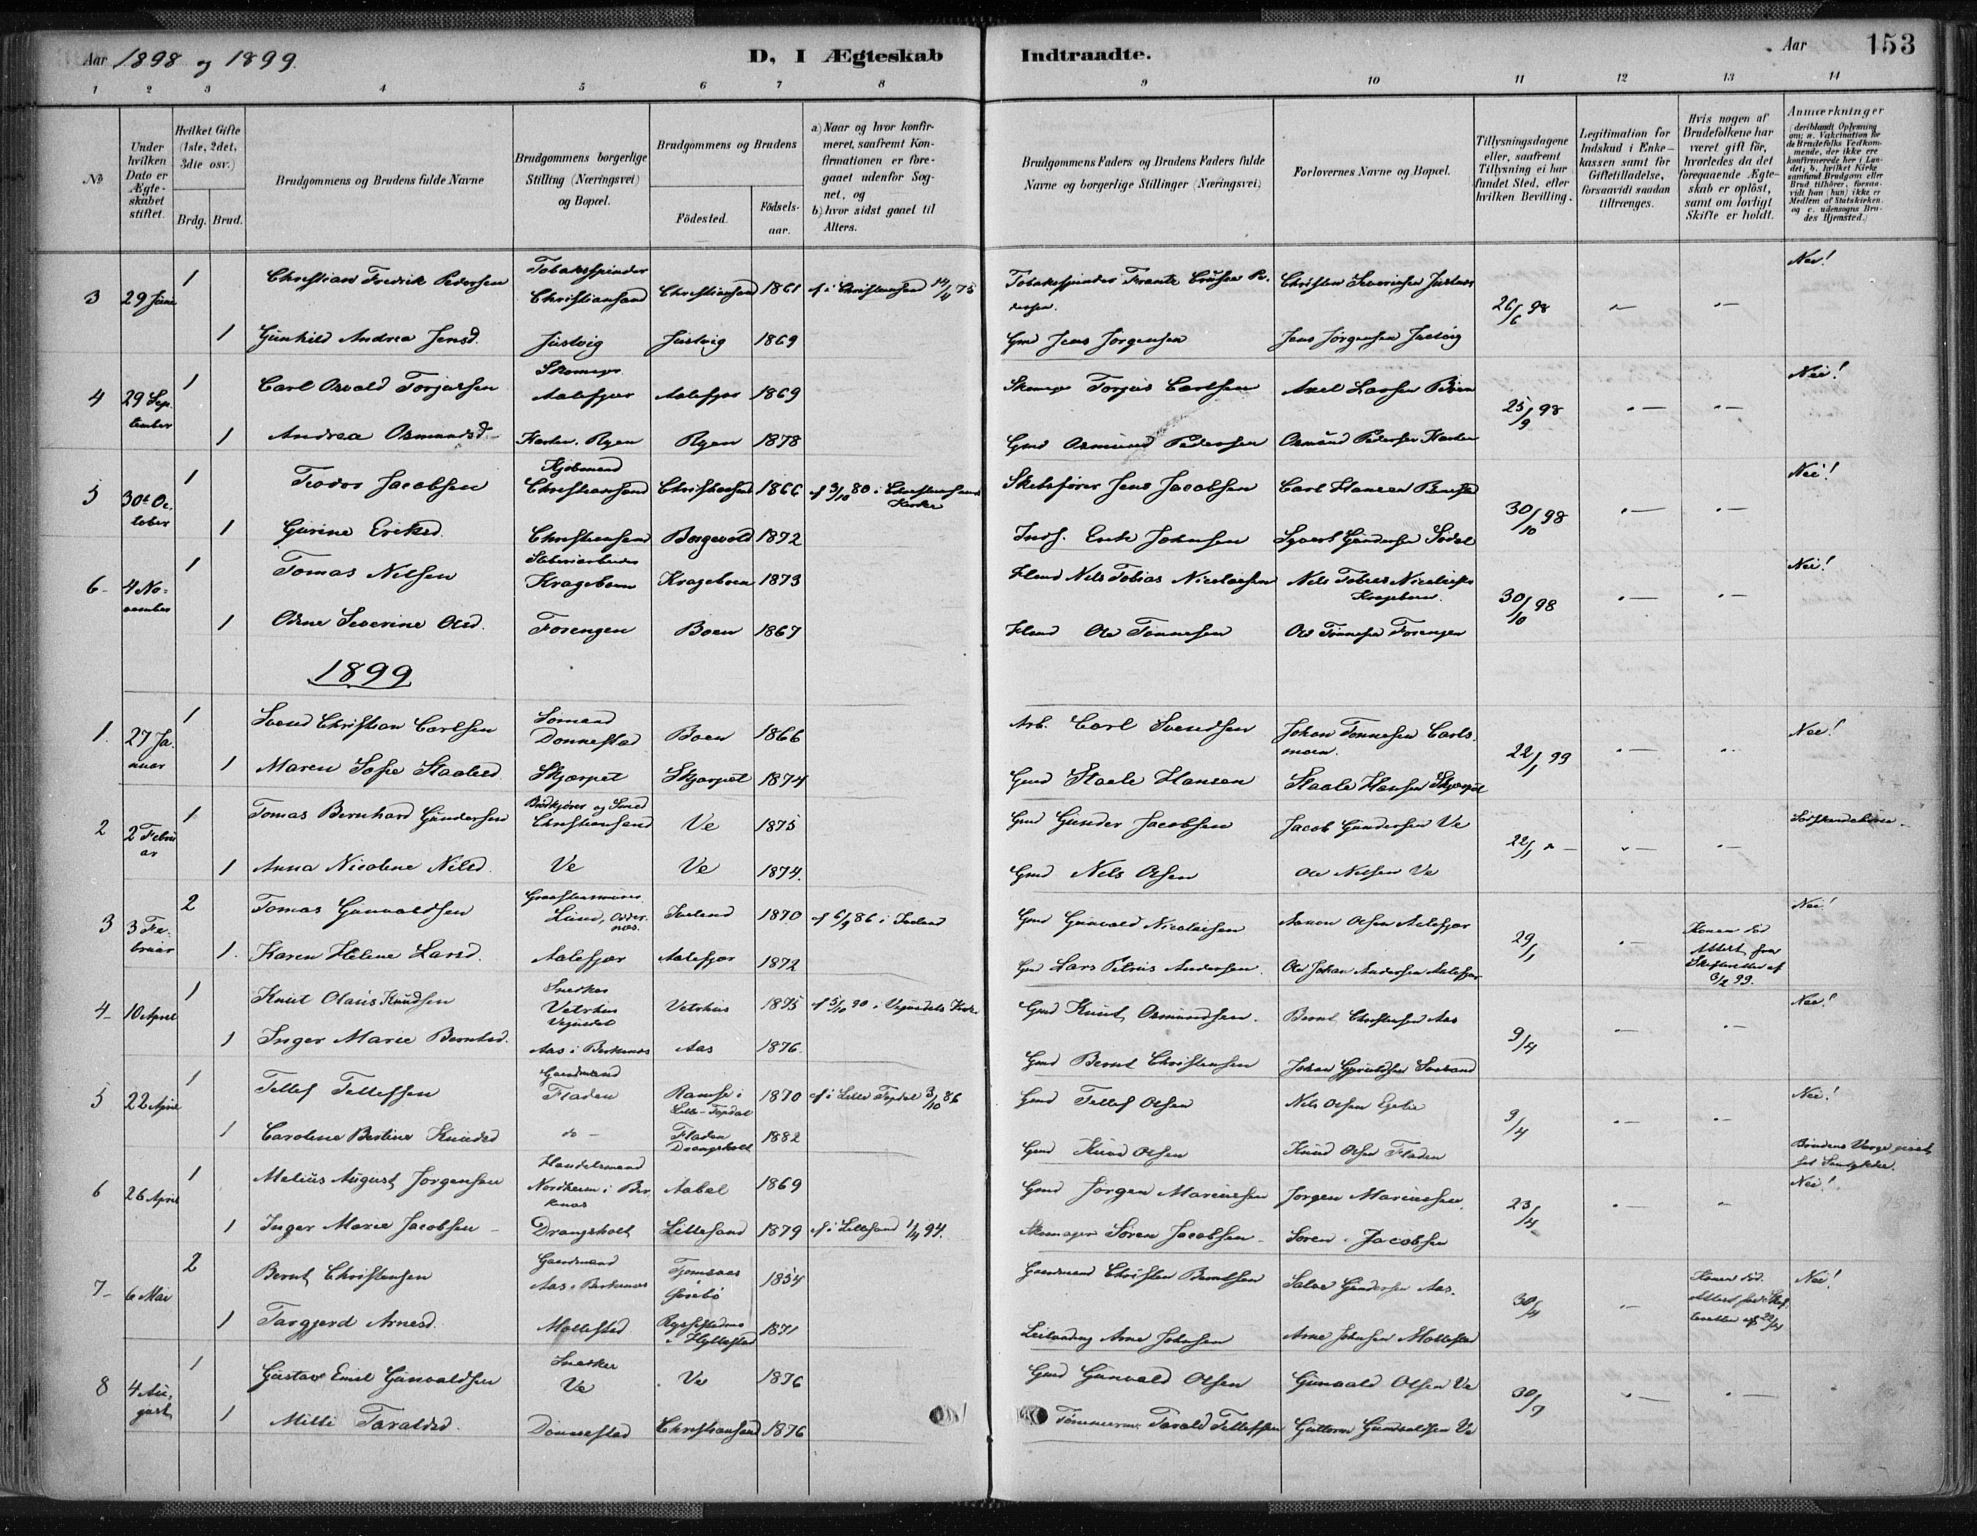 Aar 1898 og 1899.
D, I Ægteskab Indtraadte.
Aar 153
1 2 3 4 5 6 7 8 9 10 11 12 13 14
No
Under hvilken Dato er Ægteskabet stiftet.
Hvilket Gifte (1ste, 2det, 3die osv.)
Brdg. Brud.
Brudgommens og Brudens fulde Navne
Brudgommens borgerlige Stilling (Næringsvei) og Bopæl.
Brudgommens og Brudens
Födested. Födsels-aar.
a) Naar og hvor konfir-
meret, saafremt Kon-
firmationen er fore-
gaaet udenfor Sog-
net, og
b) hvor sidst gaaet til
Alters.
Brudgommens Faders og Brudens Faders fulde Navne og borgerlige Stillinger (Næringsvei)
Forlovernes Navne og Bopæl.
Tillysningsdagene eller, saafremt Tillysning ei har fundet Sted, efter hvilken Bevilling.
Legitimation for Indskud i Enke-kassen samt for Giftetilladelse, forsaavidt saadan tiltrænges.
Hvis nogen af Brudefolkene har været gift för, hvorledes da det foregaaende Ægte-skab er oplöst, samt om lovligt Skifte er holdt.
Anmærkninger
(deriblandt Oplysning om: a. Vakcination for de Brudefolks Vedkom-mende, der ikke ere konfirmerede her i Lan-det; b. hvilket Kirke-samfund Brudgom eller Brud tilhörer, forsaa-vidt han (hun) ikke er Medlem af Statskirken, og c. udensogns Bru-des Hjemsted.)
3 29 Juni 1 Christian Fredrik Pedersen Tobaksspinder Christiansand Christiansand 1861 cf i Christiansand 14/4 75 Tobaksspinder Frantz Pedersen. Christen Severinsen Justvig 26/6 98 Nei!
1 Gunhild Andrea Jensd. Justvig Justvig 1869 Gmd Jens Jörgensen Jens Jörgensen Justvig
4 29 September 1 Carl Osvald Torjussen Skomager Aalefjær Aalefjær 1869 Skomager Torjus Carlsen Axel Larsen 25/9 98 Nei!
1 Andrea Osmundsd. Ryen Ryen 1878 Gmd Osmund Pedersen Osmund Pedersen
5 30te October 1 Teodor Jacobsen Kjøbmand Christiansand Christiansand 1866 cf 3/10 80 i Christiansands Kirke Skibsfører Jens Jacobsen Carl Hansen 30/10 98 Nei!
1 Gurine Eriksd. Christiansand Borgevold 1872 Inds. Erik Johnsen Gundersen
6 4 November 1 Tomas Nilsen Krageboen Krageboen 1873 Nels Tobias Nicolaisen Nels Tobias Nicolaisen Krageboen. 30/10 98 Nei!
1 Odine Severine Olsd. Forengen Boen 1867 Ole Tönnesen Ole Tönnesen Forengen
1899
1. 27 Januar 1 Svend Christian Carlsen Sömand Donnestad Boen 1866 Arb. Carl Svendsen Johan Tönnesen Carlsmoen. 22/1 99 Nei!
1 Maren Sofie Staalesd. Skjærpet Skjærpet 1874 Gmd Staale Hansen Staale Hansen Skjærpet
2 2 Februar 1 Tomas Bernhard Gundersen Christiansand Ve 1875 Gmd Gunder Jacobsen Jacob Gundersen Ve 22/1 Södskendebörn.
1 Anna Nicoline Nilsd. Ve Ve 1874. Gmd Nels Olsen Ole Nilsen Ve
3 3 Februar 2 Tomas Gunvaldsen Lund, Oddernes. Iveland 1870 cf 6/9 86 i Iveland Gmd Gunvald Nicolaisen Aanon Olsen Aalefjær 29/1 Konen död Attest fra Skifteretten af 3/2 99. Nei!
1. Karen Helene Larsd. Aalefjær Aalefjær 1872 Gmd Lars Petrus Andersen. Ole Johan Andersen Aalefjær
4 10 April 1 Knut Olaus Knudsen Snedker Vetrhus Vegusdal Vetrhus 1875 cf 5/10 90 i Vegusdals Kirke Gmd Knut Osmundsen. Bernt Christensen Aas 9/4 Nei!
1 Inger Marie Berntsd. Aas i Berkenes Aas 1876 Gmd Bernt Christensen Johan
5 22 April 1 Tellef Tellefsen Gaardmand Fladen i Lille-Topdal 1870 cf i Lille Topdal 3/10 86 Gmd Tellef Olsen Nils Olsen 9/4 Nei!
1 Caroline Bertine Knudsd do Fladen Drangsholt 1882 Gmd Knud Olsen Knud Olsen Fladen Brudens Værge givet sit Samtykke.
6 26 April 1 Melius August Jörgensen Handelsmand i Berkenes Aabel 1869 Gmd Jörgen Marcusen Jörgen Marcusen 23/4 Nei!
1 Inger Marie Jacobsen Drangsholt Lillesand 1879 cf i Lillesand 94. Skomager Sören Jacobsen Sören Jacobsen
7 6 Mai 2 Bernt Christensen Gaardmand Aas i Berkenes 1854 Gaardmand Christen Berntsen Salve Gundersen Aas. 30/4 Konen död. Nei!
1 Targjerd Arnesd. Mollestad i Hyllestad 1871 Arne Johnsen Arne Johnsen Mollestad
8 4 August 1 Gustav Emil Gunvaldsen Snedker Ve Ve 1876 Gmd Gunvald Olsen Gunvald Olsen Ve 30/7
1 Milli Taraldsd. Donnestad Christiansand 1876 Tömmerm. Tarald Tellefsen Guttorm Gundvaldsen Ve